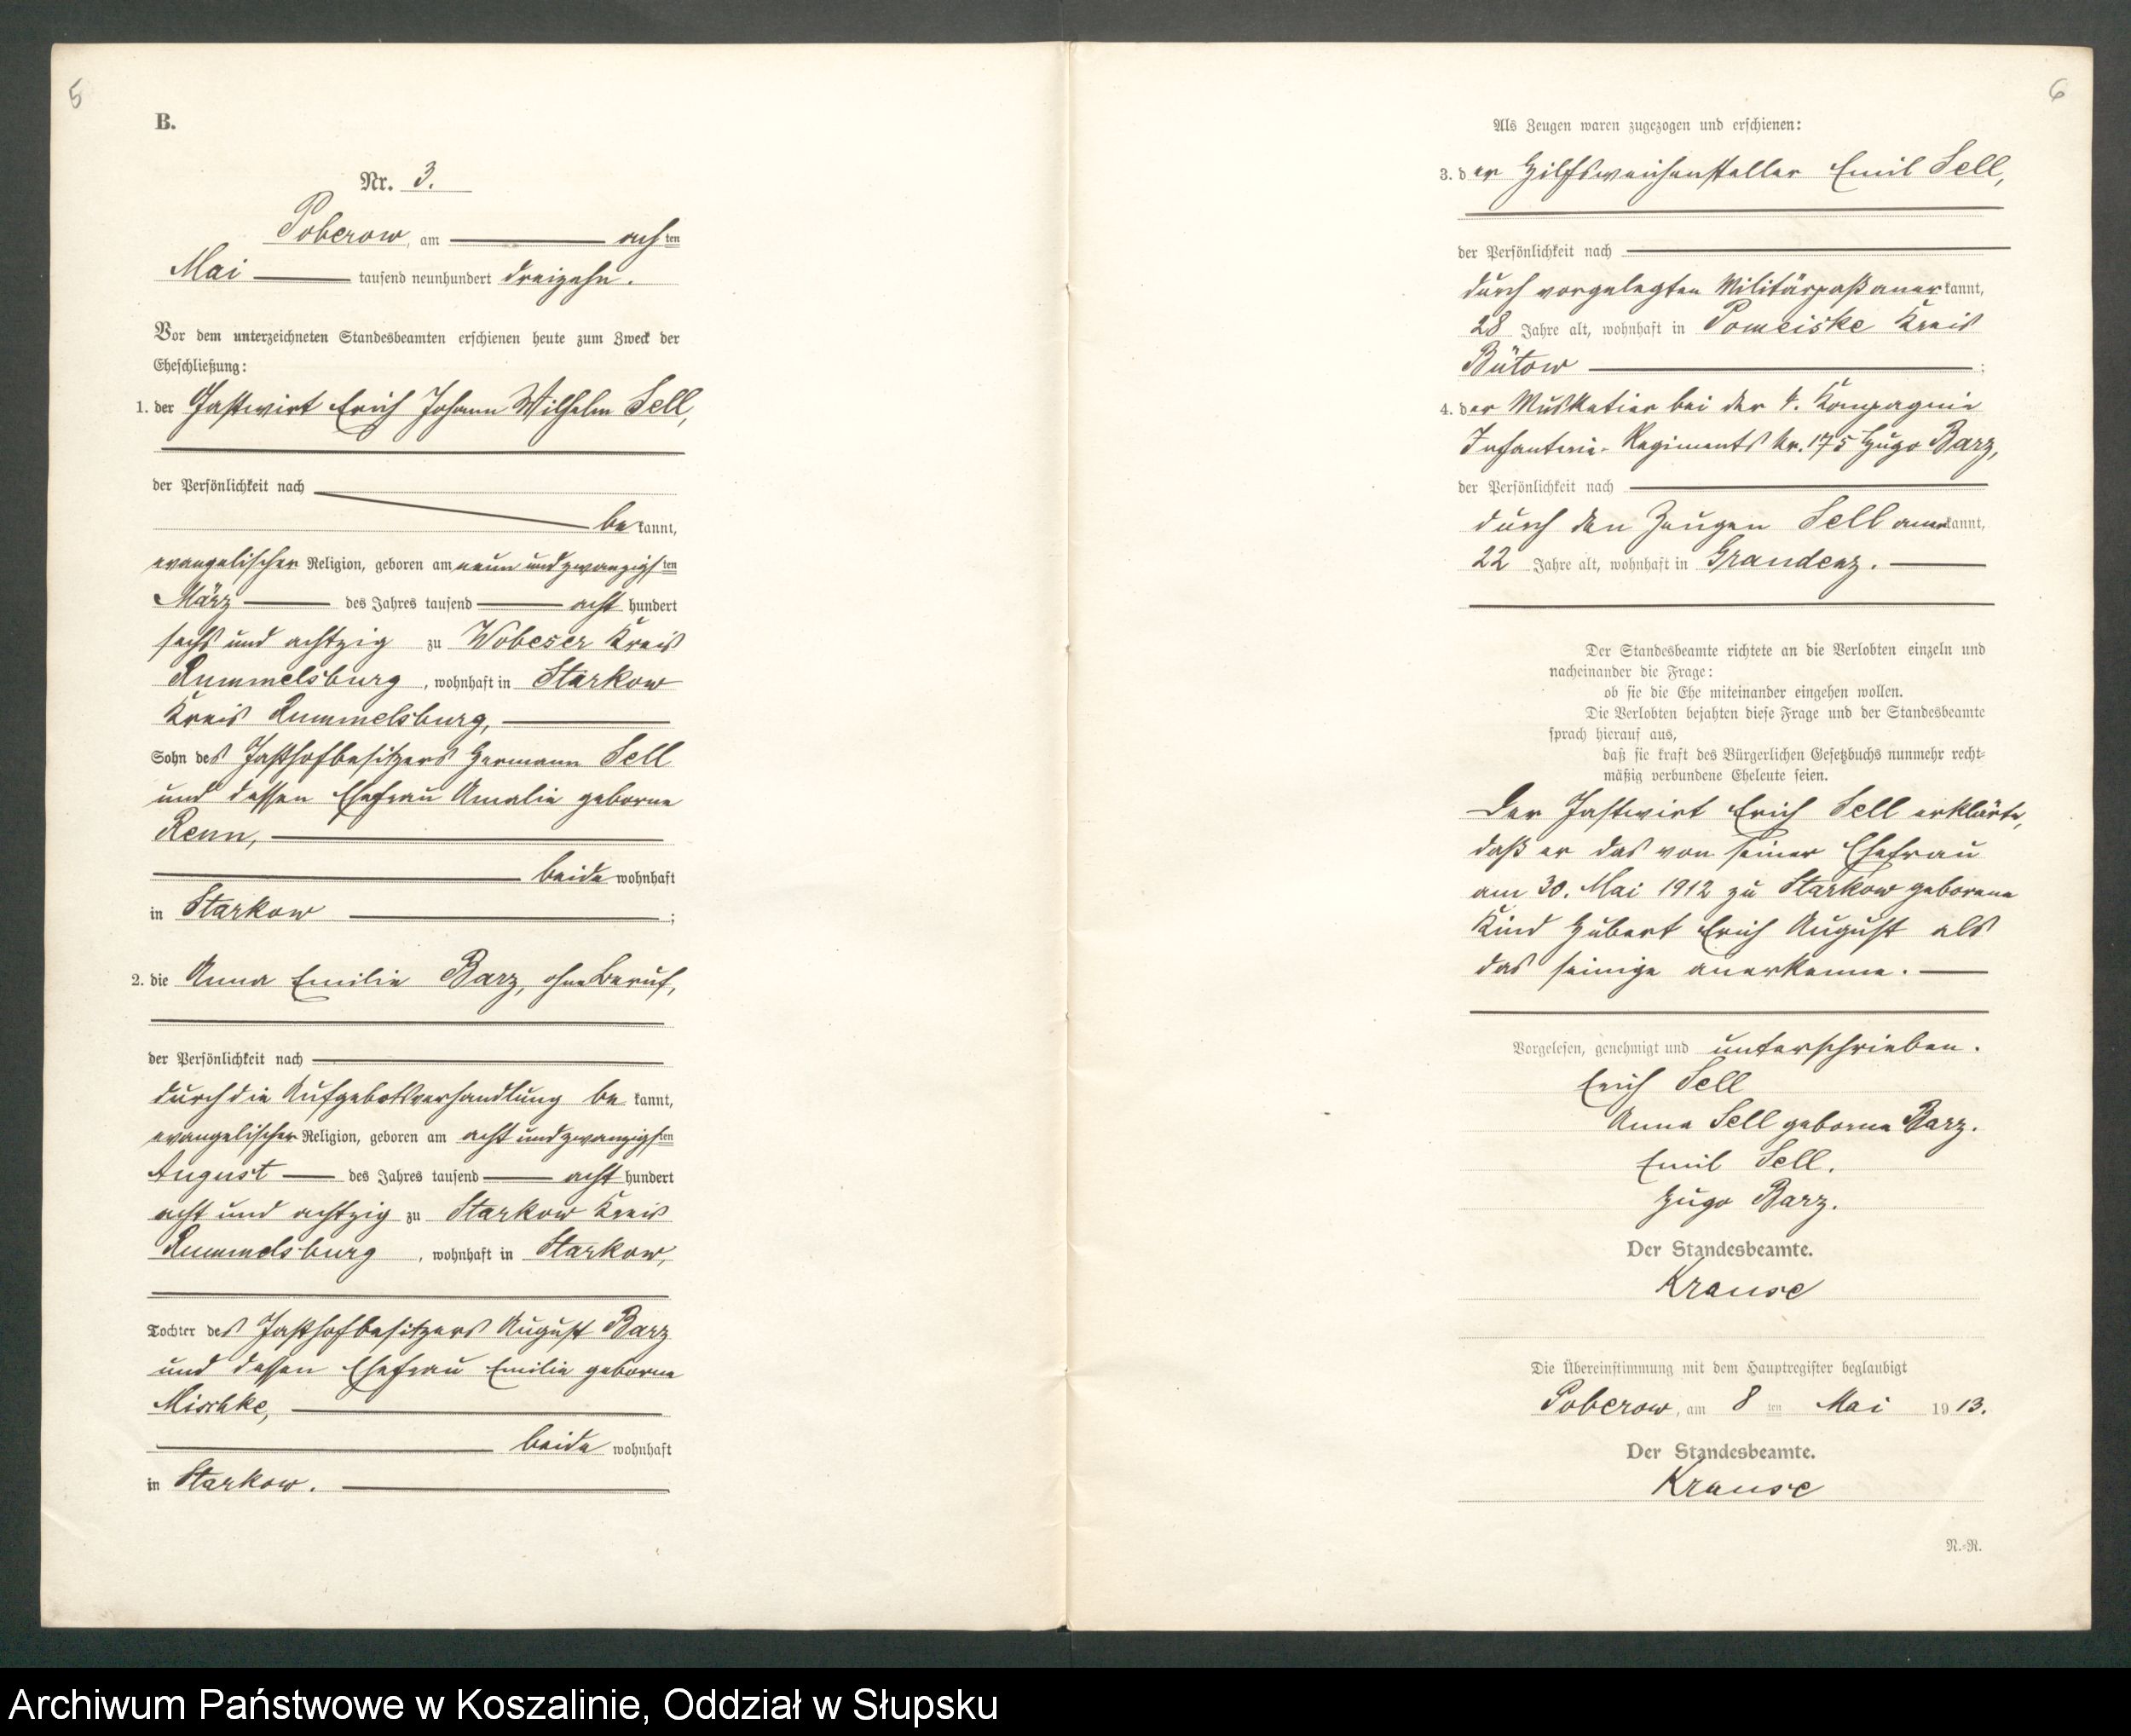 5
B.
Nr. 3.
Poberow, am achten
Mai tausend neunhundert dreizehn.
Vor dem unterzeichneten Standesbeamten erschienen heute zum Zweck der
Eheschließung:
1. der Gastwirt Erich Johann Wilhelm Sell,
der Persönlichkeit nach
bekannt,
evangelischer Religion, geboren am neun und zwanzigsten
März des Jahres tausend acht hundert
sechs und achtzig zu Wobeser Kreis
Rummelsburg, wohnhaft in Starkow
Kreis Rummelsburg,
Sohn des Gasthofbesitzers Hermann Sell
und dessen Ehefrau Amalie geborne
Renn,
beide wohnhaft
in Starkow ;
2. die Anna Emilie Barz, ohne Beruf,
der Persönlichkeit nach
durch die Aufgebotsverhandlung bekannt,
evangelischer Religion, geboren am acht und zwanzigsten
August des Jahres tausend acht hundert
acht und achtzig zu Starkow Kreis
Rummelsburg, wohnhaft in Starkow,
Tochter des Gasthofbesitzers August Barz
und dessen Ehefrau Emilie geborne
Mischke,
beide wohnhaft
in Starkow.
6
Als Zeugen waren zugezogen und erschienen:
3. der Hilfsweichensteller Emil Sell,
der Persönlichkeit nach
durch vorgelegten Militärpaß anerkannt,
28 Jahre alt, wohnhaft in Pomeiske Kreis
Bütow ;
4. der Musketier bei der 4. Kompagnie
Infanterie-Regiments Nr. 175 Hugo Barz,
der Persönlichkeit nach
durch den Zeugen Sell anerkannt,
22 Jahre alt, wohnhaft in Graudenz.
Der Standesbeamte richtete an die Verlobten einzeln und
nacheinander die Frage:
ob sie die Ehe miteinander eingehen wollen.
Die Verlobten bejahten diese Frage und der Standesbeamte
sprach hierauf aus,
daß sie kraft des Bürgerlichen Gesetzbuchs nunmehr recht-
mäßig verbundene Eheleute seien.
Der Gastwirt Erich Sell erklärte,
daß er das von seiner Ehefrau
am 30. Mai 1912 zu Starkow geborene
Kind Hubert Erich August als
das seinige anerkenne.
Vorgelesen, genehmigt und unterschrieben.
Erich Sell
Anna Sell geborne Barz.
Emil Sell.
Hugo Barz.
Der Standesbeamte.
Krause
Die Übereinstimmung mit dem Hauptregister beglaubigt
Poberow, am 8 ten Mai 1913.
Der Standesbeamte.
Krause
N.-R.
Archiwum Państwowe w Koszalinie, Oddział w Słupsku